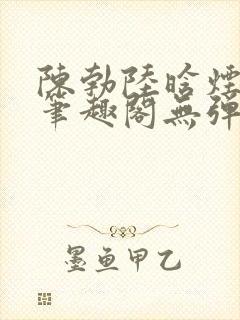 陳勃陸晗煙
筆趣閣無彈
墨魚甲乙